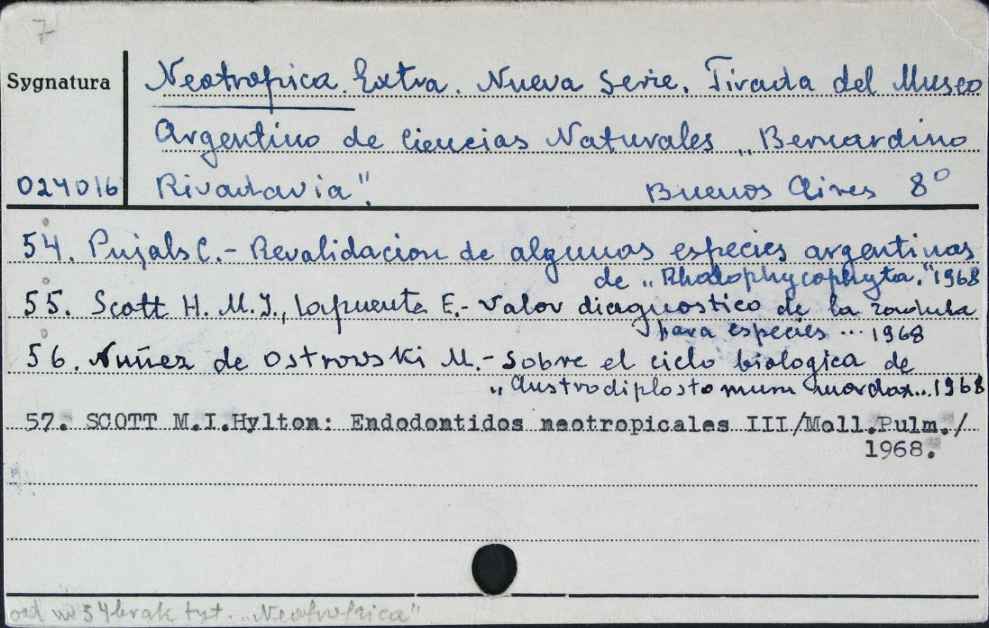 7
Neotropica. Extra. Nueva Serie. Tirada del Museo
Sygnatura
Argentino de Ciencias Naturales „Bernardino
024016 Rivadavia". Buenos Aires 8°
54. Pujals C.- Revalidacion de algunas especies argentinas
de „Rhodophycophyta." 1968
55. Scott H. M.I., Lapuente E.- Valor diagnostico de la
para especies ... 1968
56. Nuñez de Ostrowski M.- Sobre el ciclo biologica de
„Austrodiplostomum mordax... 1968
57. SCOTT M.I.Hylton: Endodontidos neotropicales III/Moll.Pulm./
1968.
od nr 54 brak tyt. „Neotropica"